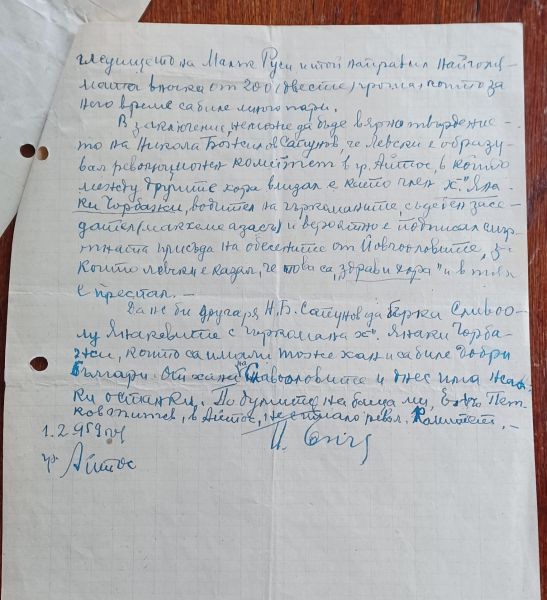 на Малка Руси и той направил найголя-
мата вноска от 200 (двести) гроша, които за
него време са биле много пари.
В заключение, неможе да бъде вярно твърдение-
то на Никола Божилов Сапунов, че Левски е образу-
вал революционен комитет в гр. Айтос, в който
между другите хора влизал е като член х." Яна-
ки Чорбажи, водител на гъркоманите, съдебен засе-
дател (махкеме азасъ) и вероятно е подписал смъ-
ртната присъда на обесените от
които Левски е казал, че това са „здрави хора" и в тях
е преспал. —
Да не би другаря Н. Б. Сапунов да бърка
Янакевите с гъркомана х". Янаки Чорба-
жи, които са имали тоже хан и са биле добри
Българи. От хана на и днес има
ки останки. По думите на баща му,
в Айтос, не е имало револ. Комитет. —
1.2.959 г.
гр. Айтос